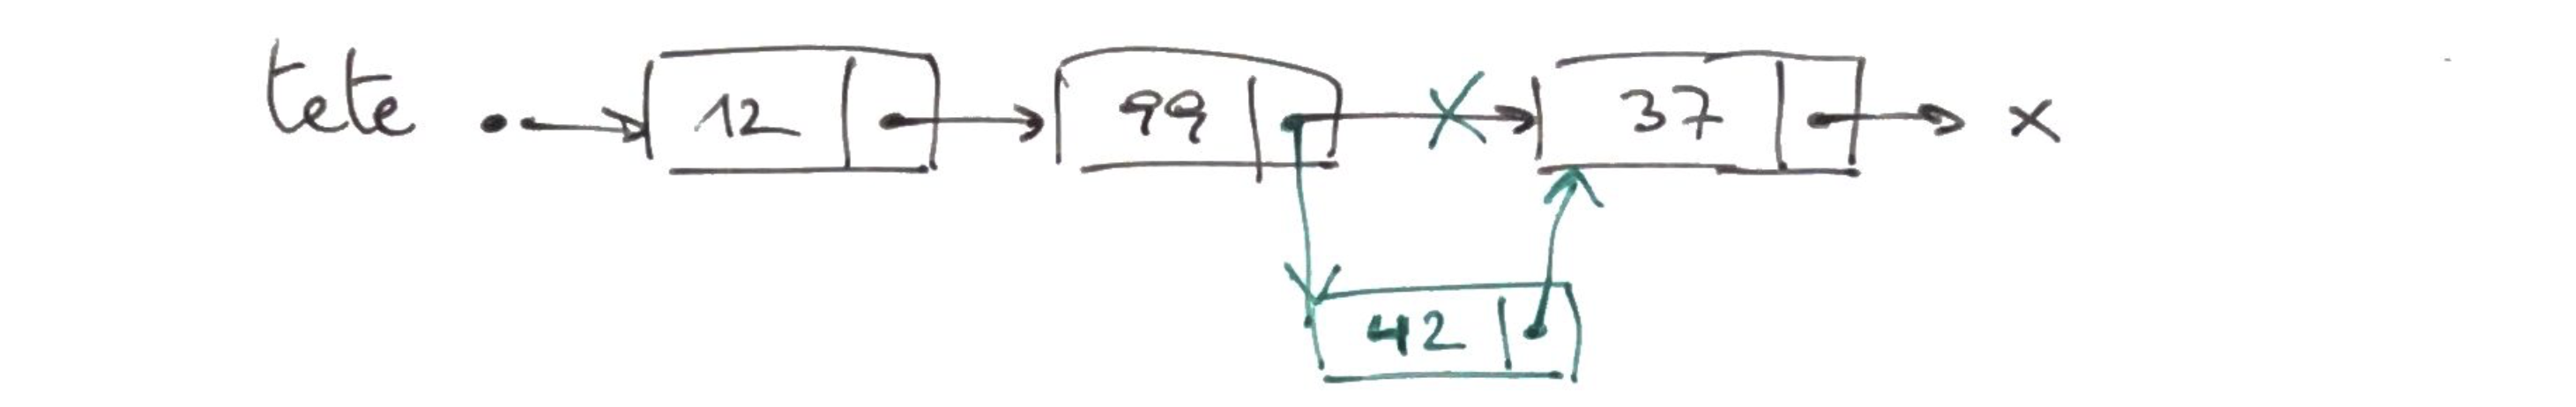 tete 12 99 37 x
42